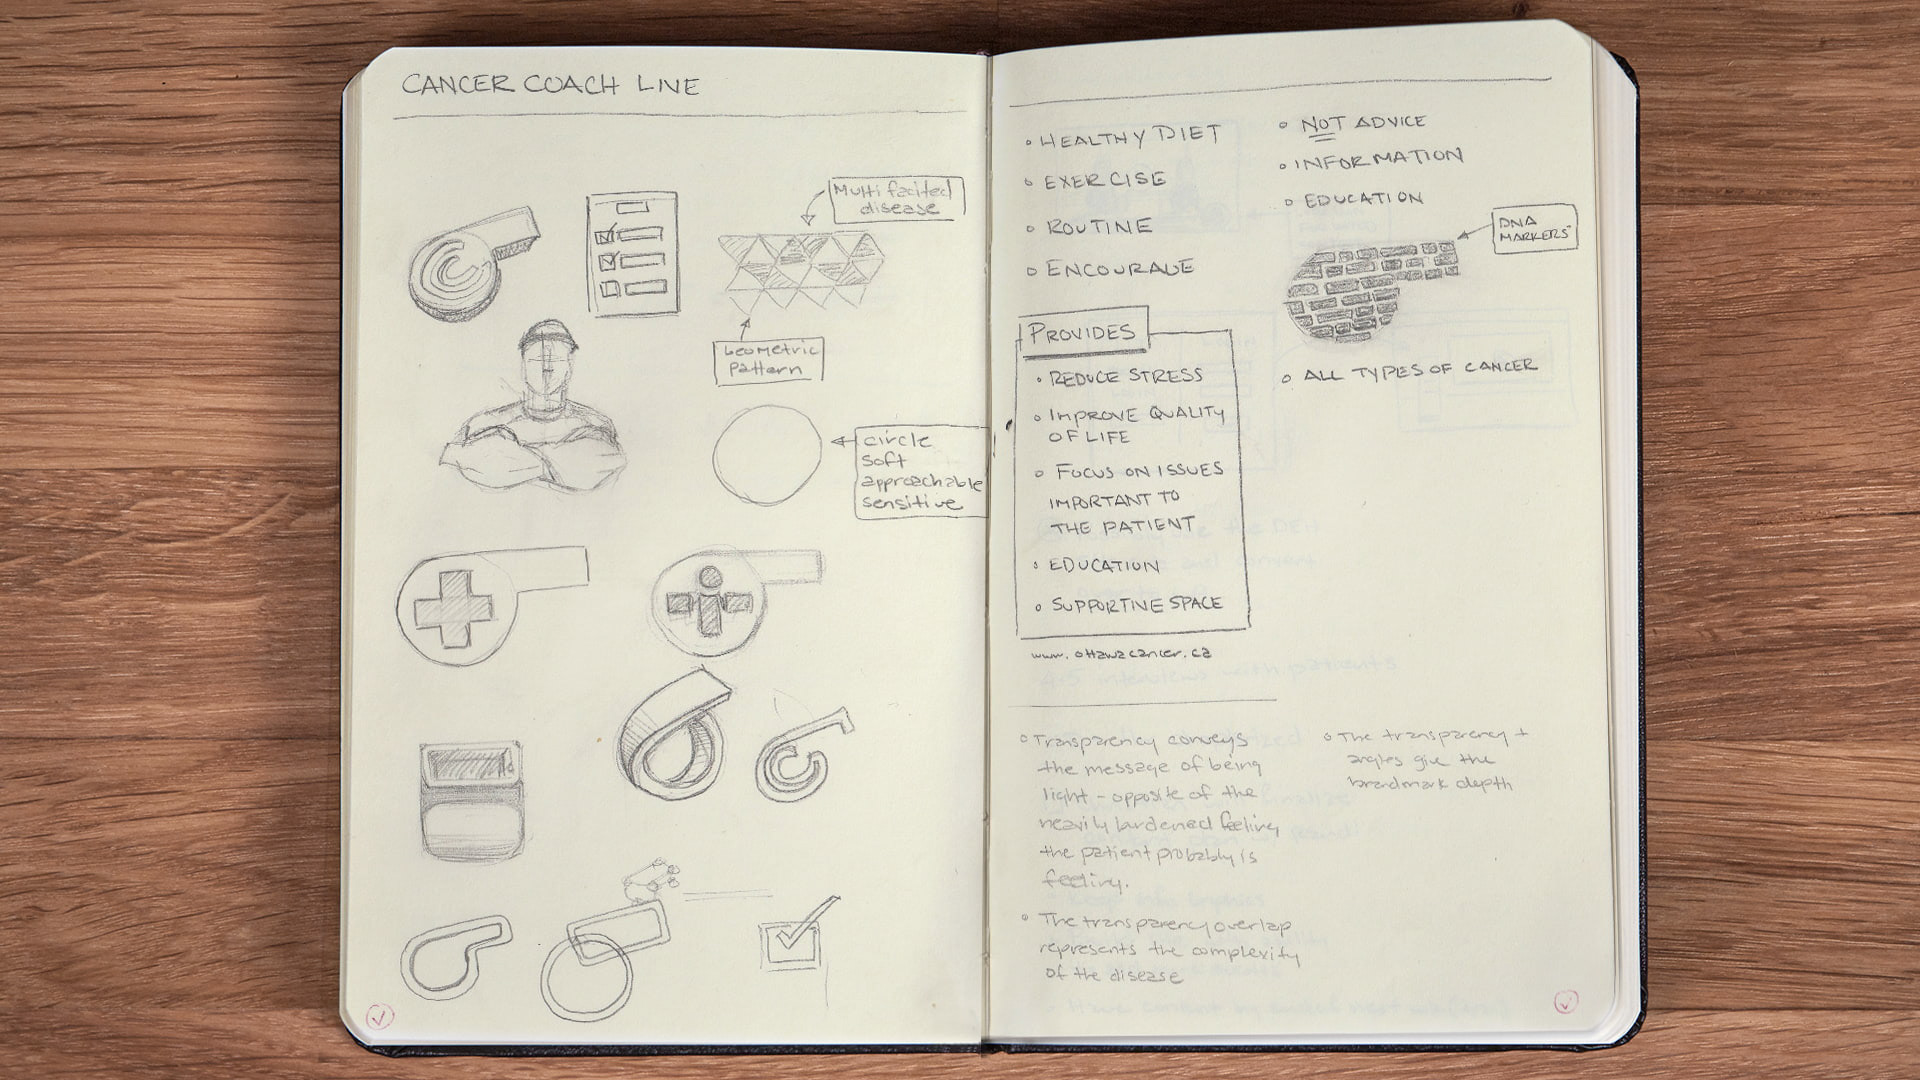 CANCER COACH LIVE
Multi facited
disease
Geometric
pattern
circle
soft
approachable
sensitive
• HEALTHY DIET
• EXERCISE
• ROUTINE
• ENCOURAGE
PROVIDES
• REDUCE STRESS
• IMPROVE QUALITY
OF LIFE
• FOCUS ON ISSUES
IMPORTANT TO
THE PATIENT
• EDUCATION
• SUPPORTIVE SPACE
www.ottawacancer.ca
• Transparency conveys
the message of being
light - opposite of the
heavily burdened feeling
the patient probably is
feeling.
• The transparency overlap
represents the complexity
of the disease
• NOT ADVICE
• INFORMATION
• EDUCATION
DNA
MARKERS
• ALL TYPES OF CANCER
• The transparency +
angles give the
brandmark depth